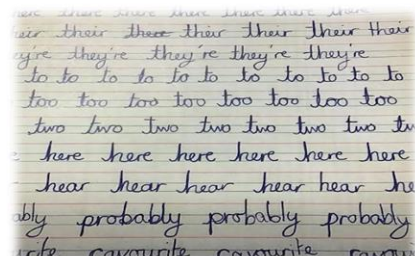 there there there there there there
their their there their their their their
they're they're they're they're they're
to to to to to to to to to to
too too too too too too too too
two two two two two two two
here here here here here here
hear hear hear hear hear
probably probably probably
favourite favourite